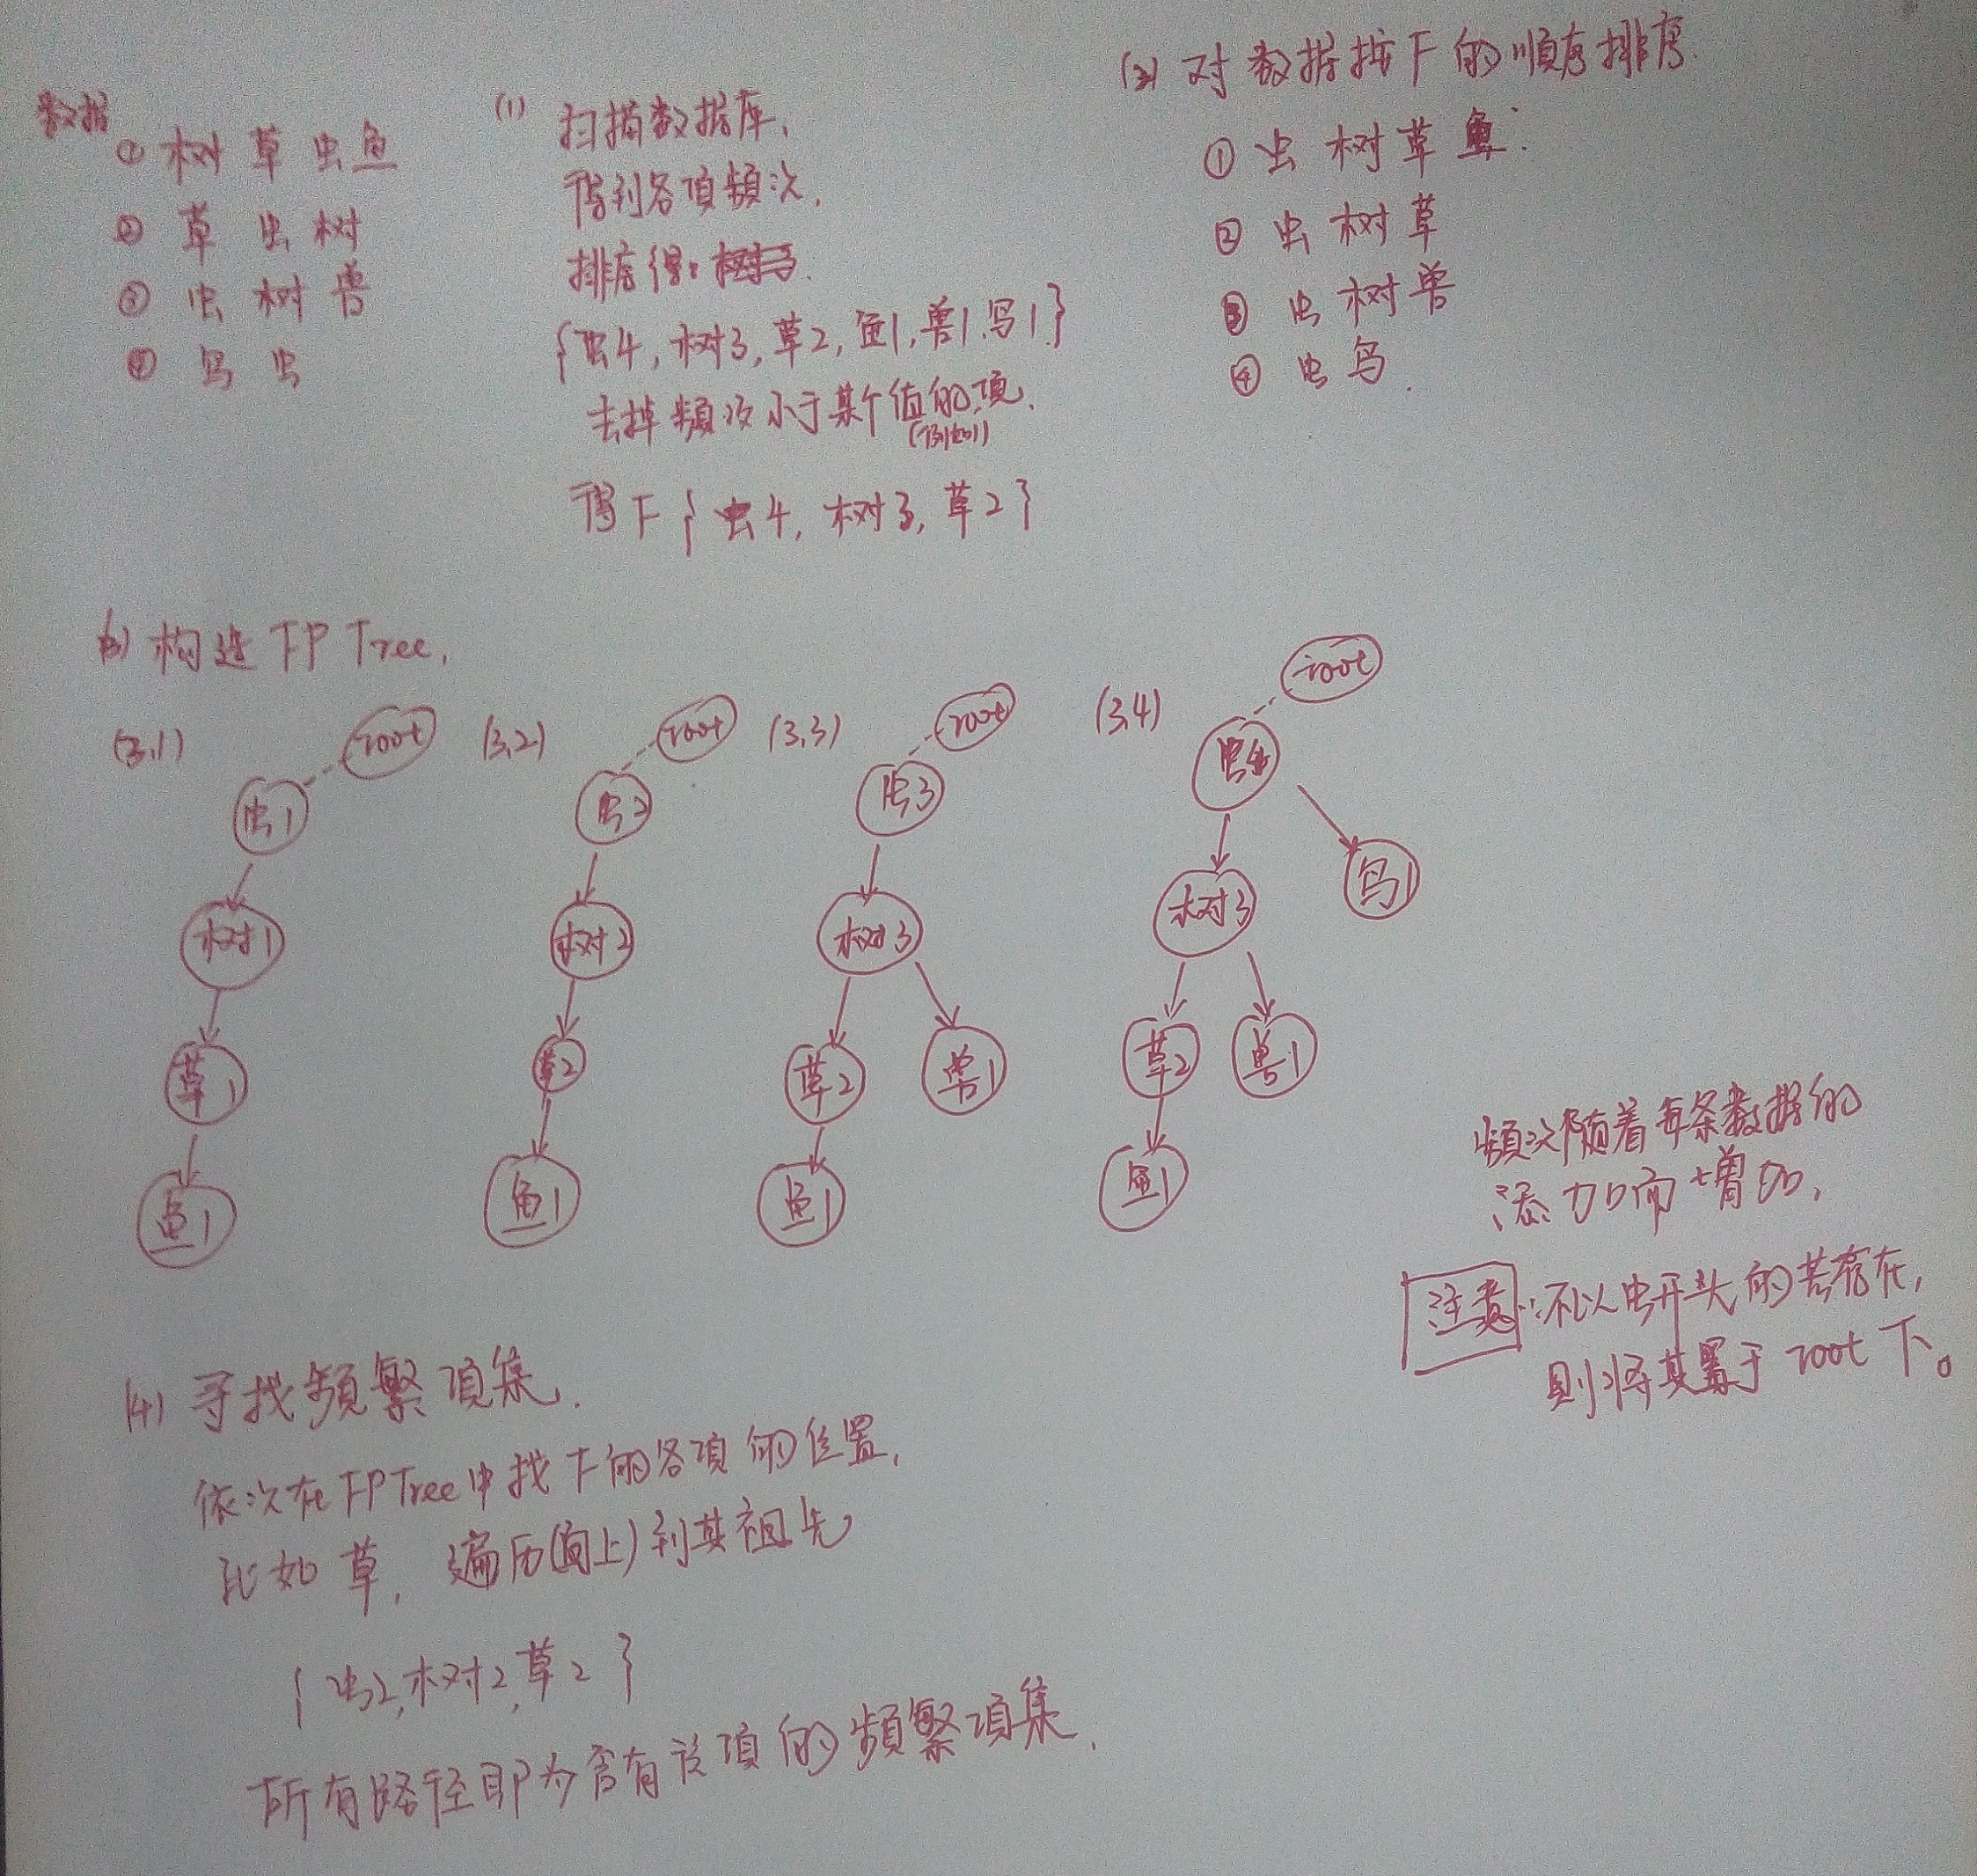 数据
① 树 草 虫 鱼
② 草 虫 树
③ 虫 树 兽
④ 鸟 虫
(1) 扫描数据库,
得到各项频次,
排序得:
{虫4, 树3, 草2, 鱼1, 兽1, 鸟1}
去掉频次小于某个值的项.
(例如1)
得 F {虫4, 树3, 草2}
(2) 对数据按F的顺序排序.
① 虫 树 草 鱼.
② 虫 树 草
③ 虫 树 兽
④ 虫 鸟.
(3) 构造 FP Tree.
(3,1) root
虫1
树1
草1
鱼1
(3,2) root
虫2
树2
草2
鱼1
(3,3) root
虫3
树3
草2 兽1
鱼1
(3,4) root
虫4
树3 鸟1
草2 兽1
鱼1
频次随着每条数据的
添加而增加,
注意:不以虫开头的若存在,
则将其置于root下。
(4) 寻找频繁项集.
依次在FP Tree中找F的各项的位置,
比如 草, 遍历(向上)到其祖先
{虫2, 树2, 草2}
所有路径即为含有该项的频繁项集.